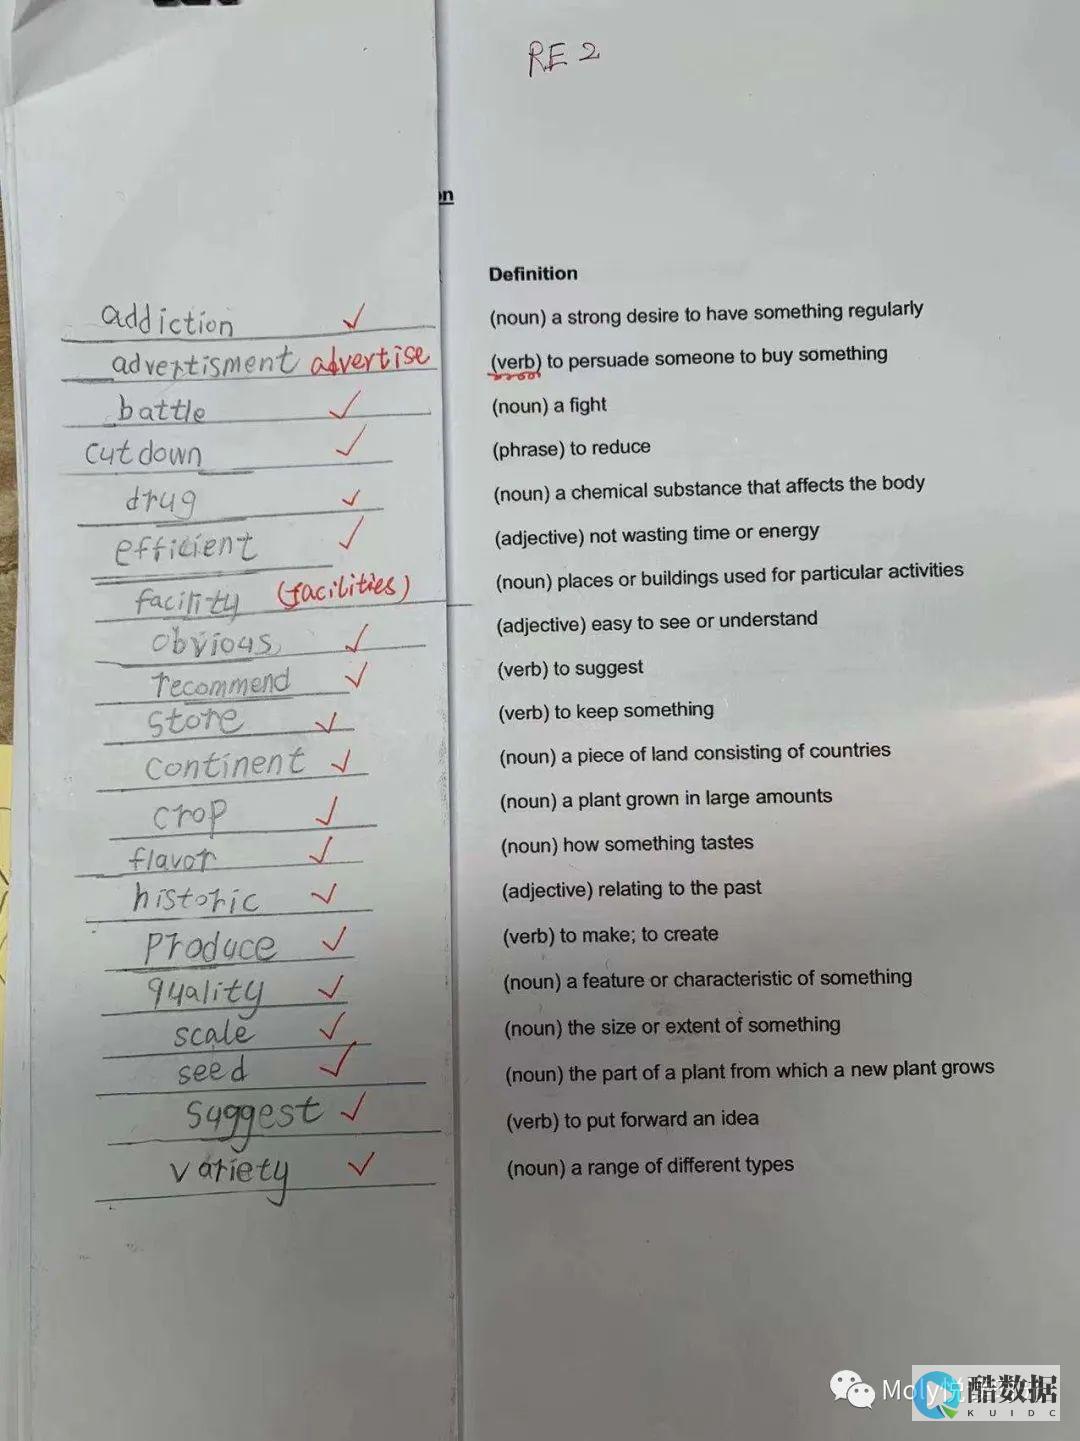 RE 2
on
Definition
addiction ✓ (noun) a strong desire to have something regularly
advertisment advertise (verb) to persuade someone to buy something
battle ✓ (noun) a fight
cut down ✓ (phrase) to reduce
drug ✓ (noun) a chemical substance that affects the body
efficient ✓ (adjective) not wasting time or energy
facility (facilities) (noun) places or buildings used for particular activities
obvious ✓ (adjective) easy to see or understand
recommend ✓ (verb) to suggest
store ✓ (verb) to keep something
continent ✓ (noun) a piece of land consisting of countries
crop ✓ (noun) a plant grown in large amounts
flavor ✓ (noun) how something tastes
historic ✓ (adjective) relating to the past
produce ✓ (verb) to make; to create
quality ✓ (noun) a feature or characteristic of something
scale ✓ (noun) the size or extent of something
seed ✓ (noun) the part of a plant from which a new plant grows
suggest ✓ (verb) to put forward an idea
variety ✓ (noun) a range of different types
Moly悦
酷数据
KUIDC